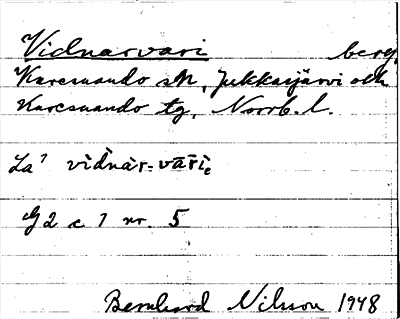 Vidnarvari berg,
Karesuando sn, Jukkasjärvi och
Karesuando tg, Norrb. l.
La⁷ vìdnàr-vāri̮e
G2 c 7 nr. 5
Bernhard Nilsson 1948